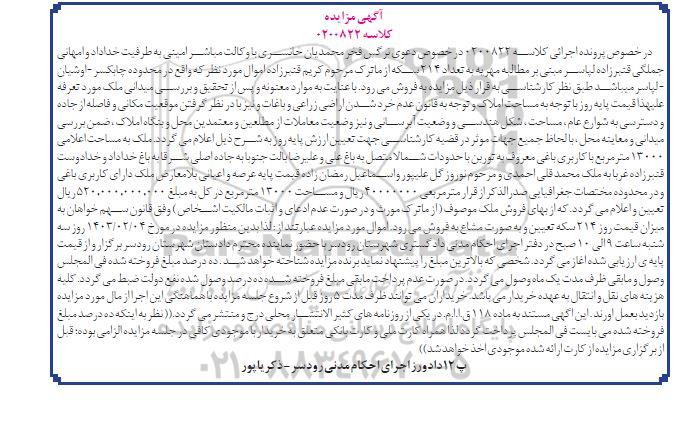 آگهی مزایده
کلاسه ۰۲۰۰۸۲۲
در خصوص پرونده اجرائی کلاسه ۰۲۰۰۸۲۲ در خصوص دعوی نرگس فخر محمدیان چانسری با وکالت مباشر امینی به طرفیت خداداد و امهانی
جملگی قنبرزاده لیاسر مبنی بر مطالبه مهریه به تعداد ۲۱۴ سکه از ماترک مرحوم کریم قنبرزاده اموال مورد نظر که واقع در محدوده چابکسر -اوشیان
-لیاسر میباشد طبق نظر کارشناسی به قرار ذیل مزایده به فروش می رود. با عنایت به موارد معنونه و پس از تحقیق و بررسی میدانی ملک مورد تعرفه
علیهذا قیمت پایه روز با توجه به مساحت املاک و توجه به قانون عدم خرد شدن اراضی زراعی و باغات و نیز با در نظر گرفتن موقعیت مکانی و فاصله از جاده
و دسترسی به شوارع عام، مساحت، شکل هندسی و وضعیت آبرسانی و نیز وضعیت معاملات از مطلعین و معتمدین محل و بنگاه املاک، ضمن بررسی
میدانی و معاینه محل، با لحاظ جمیع جهات موثر در قضیه کارشناسی جهت تعیین ارزش پایه روز به شرح ذیل اعلام می گردد. ملک به مساحت اعلامی
۱۳۰۰۰ متر مربع با کاربری باغی معروف به تورین با حدودات شمالا متصل به باغ علی و علیرضا بالت جنوبا به جاده اصلی شرقا به باغ خداداد و خدادوست
قنبرزاده غربا به ملک محمدقلی احمدی و مرحوم نوروز گل علیپور و اسماعیل رمضان زاده قیمت پایه عرصه و اعیانی بلامعارض ملک دارای کاربری باغی
و در محدوده مختصات جغرافیایی صدرالذکر از قرار متر مربعی ۴۰۰۰۰۰۰۰ ریال و مساحت ۱۳۰۰۰ متر مربع در کل به مبلغ ۵۲۰,۰۰۰,۰۰۰,۰۰۰ ریال
تعیین و اعلام می گردد. که از بهای فروش ملک موصوف (از ماترک مورث و در صورت عدم ادعای و اثبات مالکیت اشخاص) وفق قانون سهم خواهان به
میزان قیمت روز ۲۱۴ سکه تعیین و به صورت مشاع به فروش می رود. اموال مورد مزایده عبارتند از: لذا بدین منظور مزایده در مورخ ۱۴۰۳/۰۲/۰۴ روز سه
شنبه ساعت ۹ الی ۱۰ صبح در دفتر اجرای احکام مدنی دادگستری شهرستان رودسر با حضور نماینده محترم دادستان شهرستان رودسر برگزار و از قیمت
پایه ی ارزیابی شده آغاز می گردد. شخصی که بالاترین مبلغ را پیشنهاد نماید برنده مزایده شناخته خواهد شد. ده درصد مبلغ فروخته شده فی المجلس
وصول و مابقی ظرف مدت یک ماه وصول می گردد. در صورت عدم پرداخت مابقی مبلغ فروخته شده ده درصد وصول شده به نفع دولت ضبط می گردد. کلیه
هزینه های نقل و انتقال به عهده خریدار می باشد. خریداران می توانند ظرف مدت ۵ روز قبل از شروع جلسه مزایده با هماهنگی این اجرا از مال مورد مزایده
بازدید بعمل آورند. این آگهی مستند به ماده ۱۱۸ ق.ا.ا.م. در یکی از روزنامه های کثیر الانتشار محلی درج و منتشر می گردد.((نظر به اینکه ده درصد مبلغ
فروخته شده می بایست فی المجلس پرداخت گردد لذا همراه کارت ملی و کارت بانکی متعلق به خریدار با موجودی کافی در جلسه مزایده الزامی بوده؛ قبل
از برگزاری مزایده از کارت ارائه شده موجودی اخذ خواهد شد))
ب ۱۲ دادورز اجرای احکام مدنی رودسر - ذکریاپور
۰۲۱-۸۸۳۴۹۶۷۰-۵